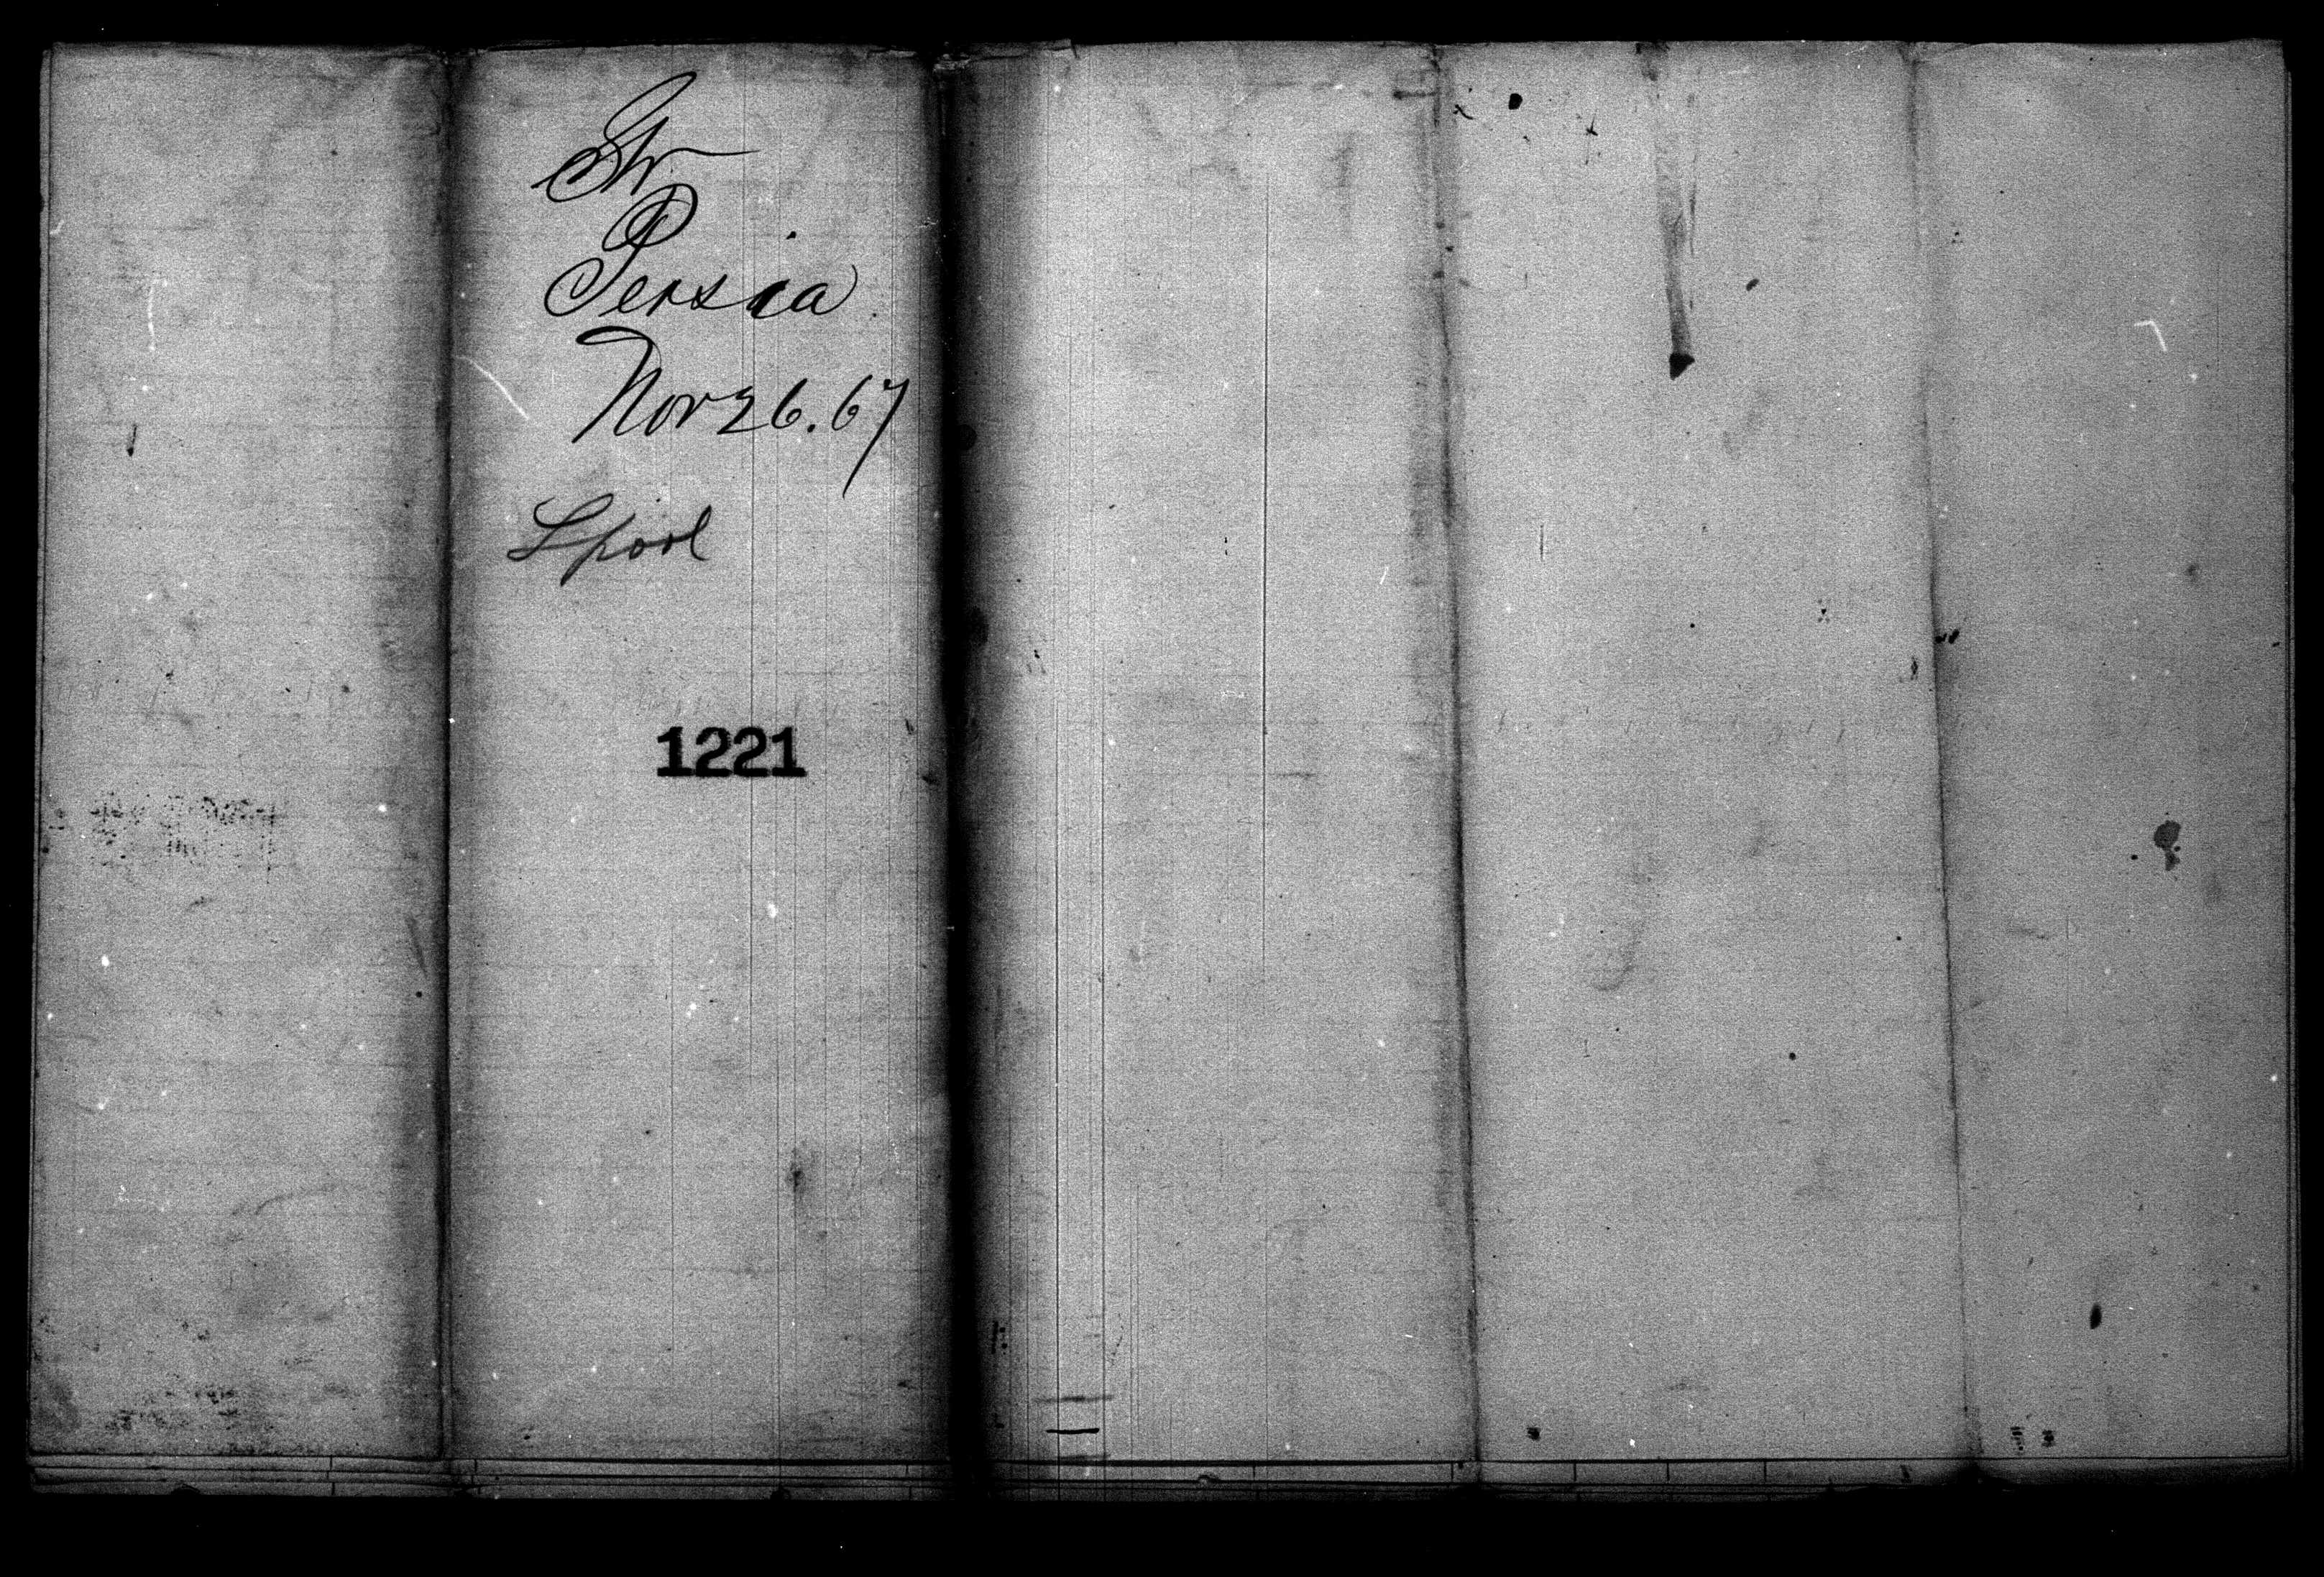 Str
Persia
Nov 26. 67
Lpool
1221